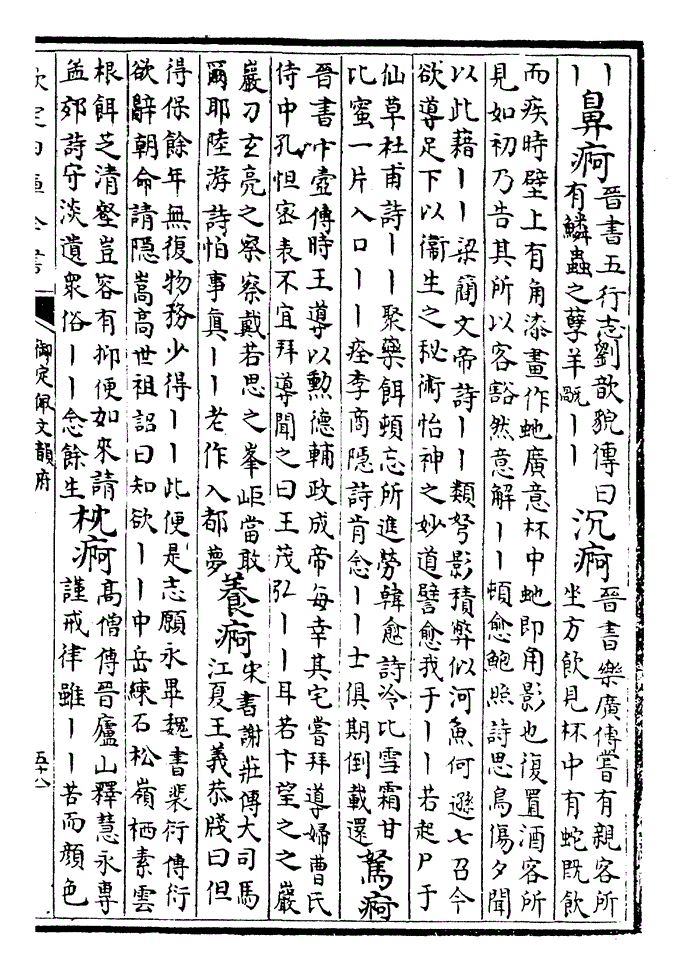 丨
丨
鼻痾
晉書五行志劉歆貌傳曰
有鱗蟲之孽羊旤丨丨
沉痾
晉書樂廣傳嘗有親客所
坐方飲見杯中有蛇旣飲
而疾時壁上有角漆畫作虵廣意杯中虵即角影也復置酒客所
見如初乃告其所以客豁然意解丨丨頓愈鮑照詩思鳥傷夕聞
以此藉丨丨梁簡文帝詩丨丨類弩影積弊似河魚何遜七召今
欲導足下以衞生之秘術怡神之妙道譬愈我于丨丨若起尸于
仙草杜甫詩丨丨聚藥餌頓忘所進勞韓愈詩冷比雪霜甘
比蜜一片入口丨丨痊李商隱詩肯念丨丨士俱期倒載還
駑痾
晉書卞壺傳時王導以勲德輔政成帝每幸其宅嘗拜導婦曹氏
侍中孔怛密表不宜拜導聞之曰王茂弘丨丨耳若卞望之之巖
巖刁玄亮之察察戴若思之峯岠當敢
爾耶陸游詩怕事眞丨丨老作入都夢
養痾
宋書謝莊傳大司馬
江夏王義恭牋曰但
得保餘年無復物務少得丨丨此便是志願永畢魏書裴衍傳衍
欲辭朝命請隱嵩高世祖詔曰知欲丨丨中岳練石松嶺栖素雲
根餌芝清壑豈容有抑便如來請
孟郊詩守淡遺衆俗丨丨念餘生
枕痾
高僧傳晉廬山釋慧永專
謹戒律雖丨丨苦而顏色
欽定四庫全書
御定佩文韻府
五十八